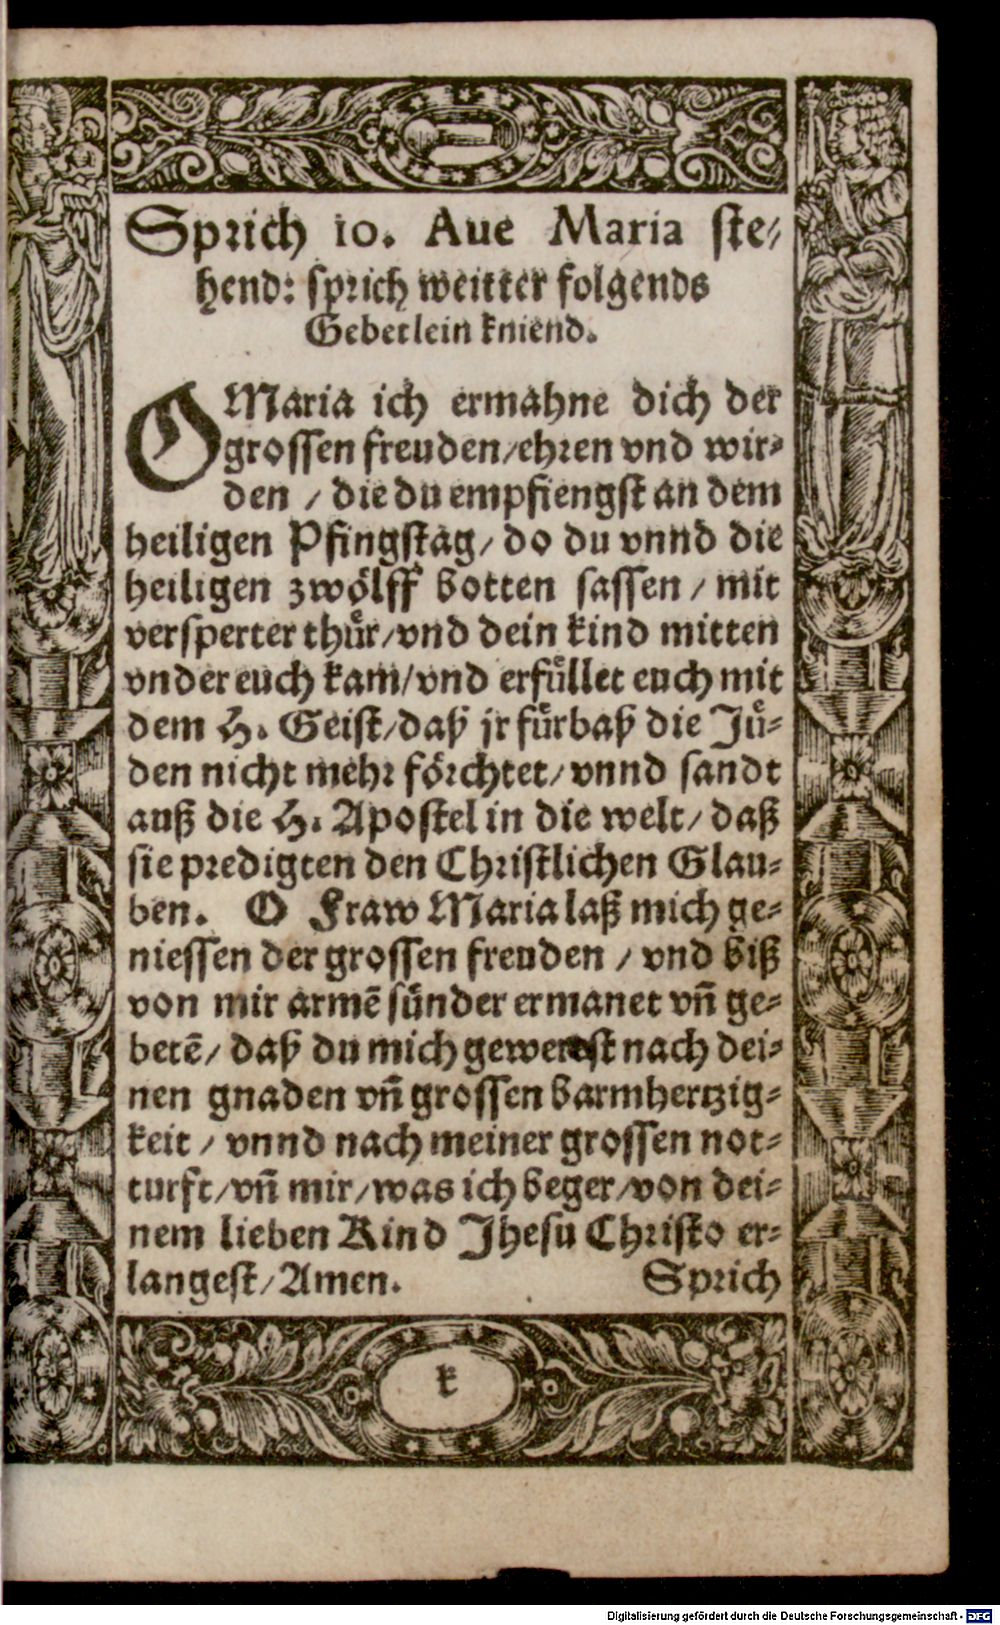 Sprich 10. Aue Maria ste-
hend: sprich weitter folgends
Gebetlein kniend.
O Maria ich ermahne dich der
grossen freuden/ehren vnd wir-
den / die du empfiengst an dem
heiligen Pfingstag/ do du vnnd die
heiligen zwoͤlff botten sassen / mit
versperter thuͤr/vnd dein kind mitten
vnder euch kam/vnd erfuͤllet euch mit
dem H. Geist/daß jr fuͤrbaß die Juͤ-
den nicht mehr foͤrchtet/vnnd sandt
auß die H. Apostel in die welt/ daß
sie predigten den Christlichen Glau-
ben. O Fraw Maria laß mich ge-
niessen der grossen freuden / vnd biß
von mir armē suͤnder ermanet vñ ge-
betē/ daß du mich gewerest nach dei-
nen gnaden vñ grossen barmhertzig-
keit / vnnd nach meiner grossen not-
turft/vñ mir/was ich beger/von dei-
nem lieben Kind Jhesu Christo er-
langest/Amen. Sprich
k
Digitalisierung gefördert durch die Deutsche Forschungsgemeinschaft - DFG